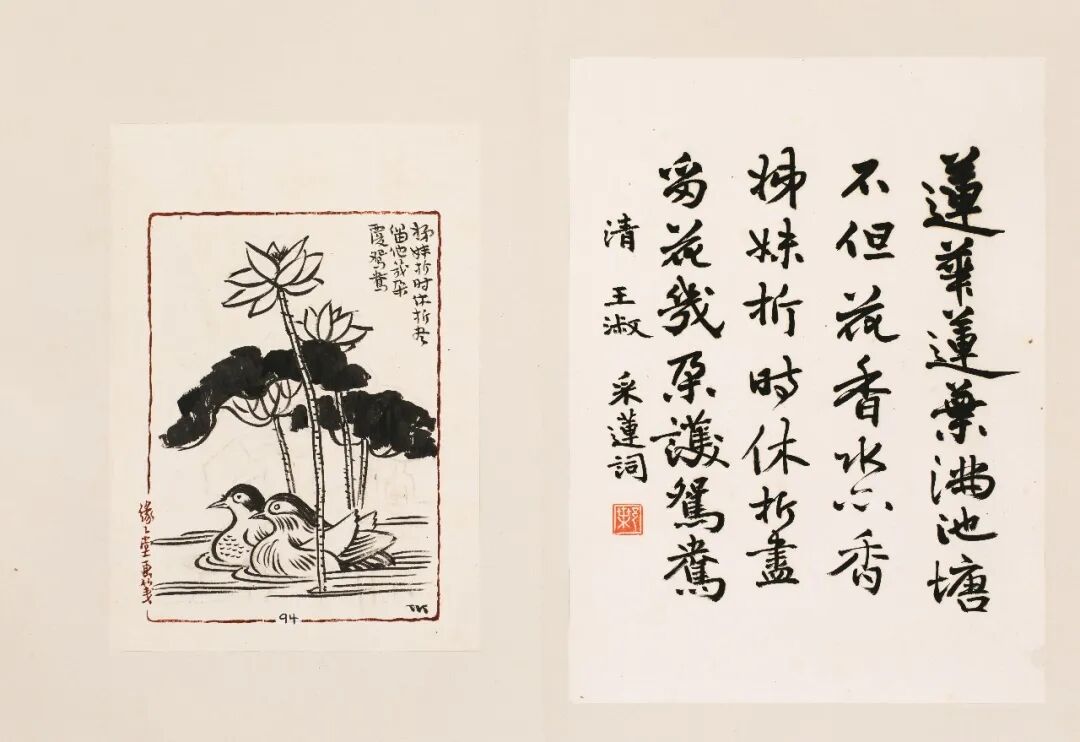 蓮華蓮葉滿池塘
不但花香水亦香
姊妹折時休折盡
留花幾朶護鴛鴦
清 王淑 采蓮詞
姊妹折时休折尽
留他几朵
覆鴛鴦
缘缘堂画笺
94
TK